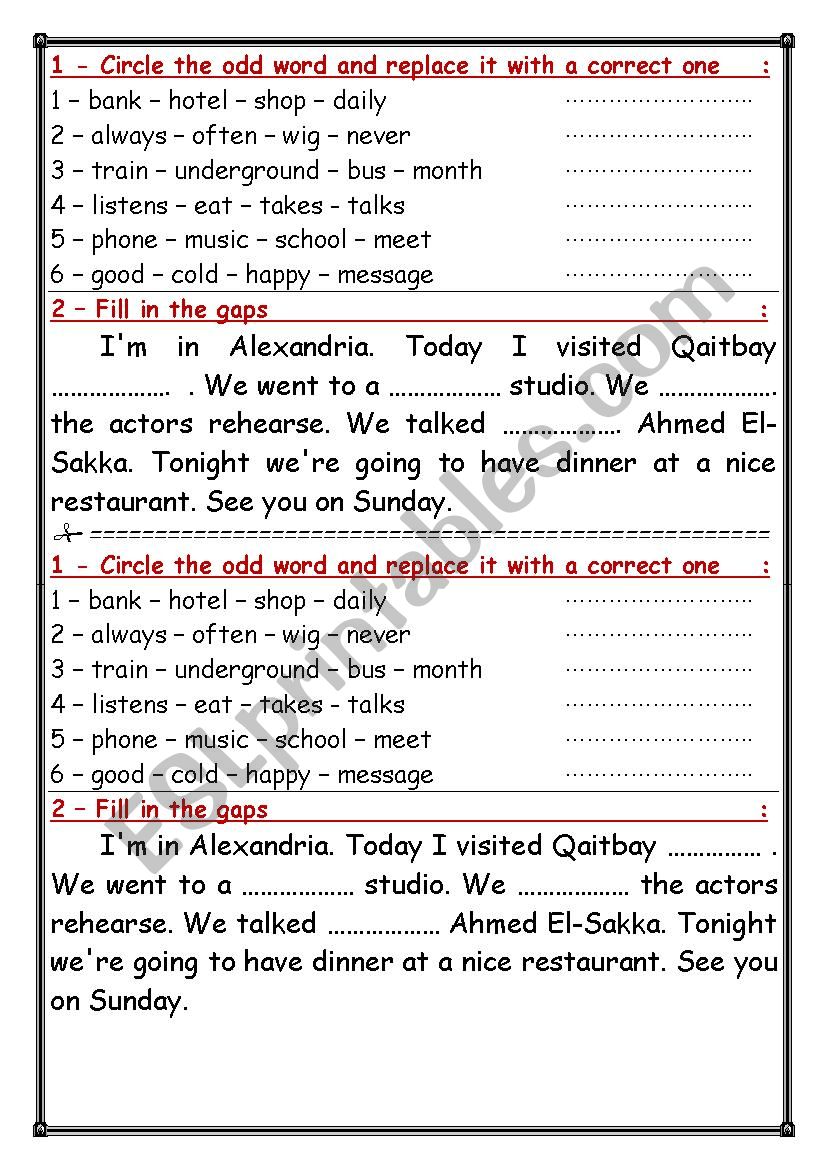 1 - Circle the odd word and replace it with a correct one :
1 – bank – hotel – shop – daily ……………………..
2 – always – often – wig – never ……………………..
3 – train – underground – bus – month ……………………..
4 – listens – eat – takes - talks ……………………..
5 – phone – music – school – meet ……………………..
6 – good – cold – happy – message ……………………..
2 – Fill in the gaps :
I'm in Alexandria. Today I visited Qaitbay
………………. . We went to a ……………… studio. We ……………….
the actors rehearse. We talked ………………. Ahmed El-
Sakka. Tonight we're going to have dinner at a nice
restaurant. See you on Sunday.
✁ ====================================================
1 - Circle the odd word and replace it with a correct one :
1 – bank – hotel – shop – daily ……………………..
2 – always – often – wig – never ……………………..
3 – train – underground – bus – month ……………………..
4 – listens – eat – takes - talks ……………………..
5 – phone – music – school – meet ……………………..
6 – good – cold – happy – message ……………………..
2 – Fill in the gaps :
I'm in Alexandria. Today I visited Qaitbay …………… .
We went to a ……………… studio. We ……………… the actors
rehearse. We talked ……………… Ahmed El-Sakka. Tonight
we're going to have dinner at a nice restaurant. See you
on Sunday.
ESLprintables.com